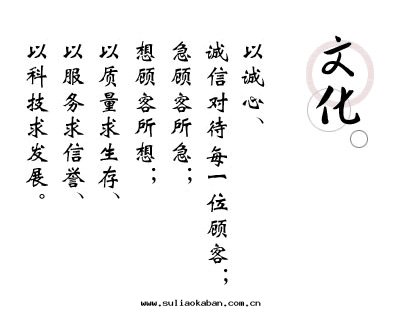 文化
以诚心、
诚信对待每一位顾客；
急顾客所急；
想顾客所想；
以质量求生存、
以服务求信誉、
以科技求发展。
www.suliaokaban.com.cn